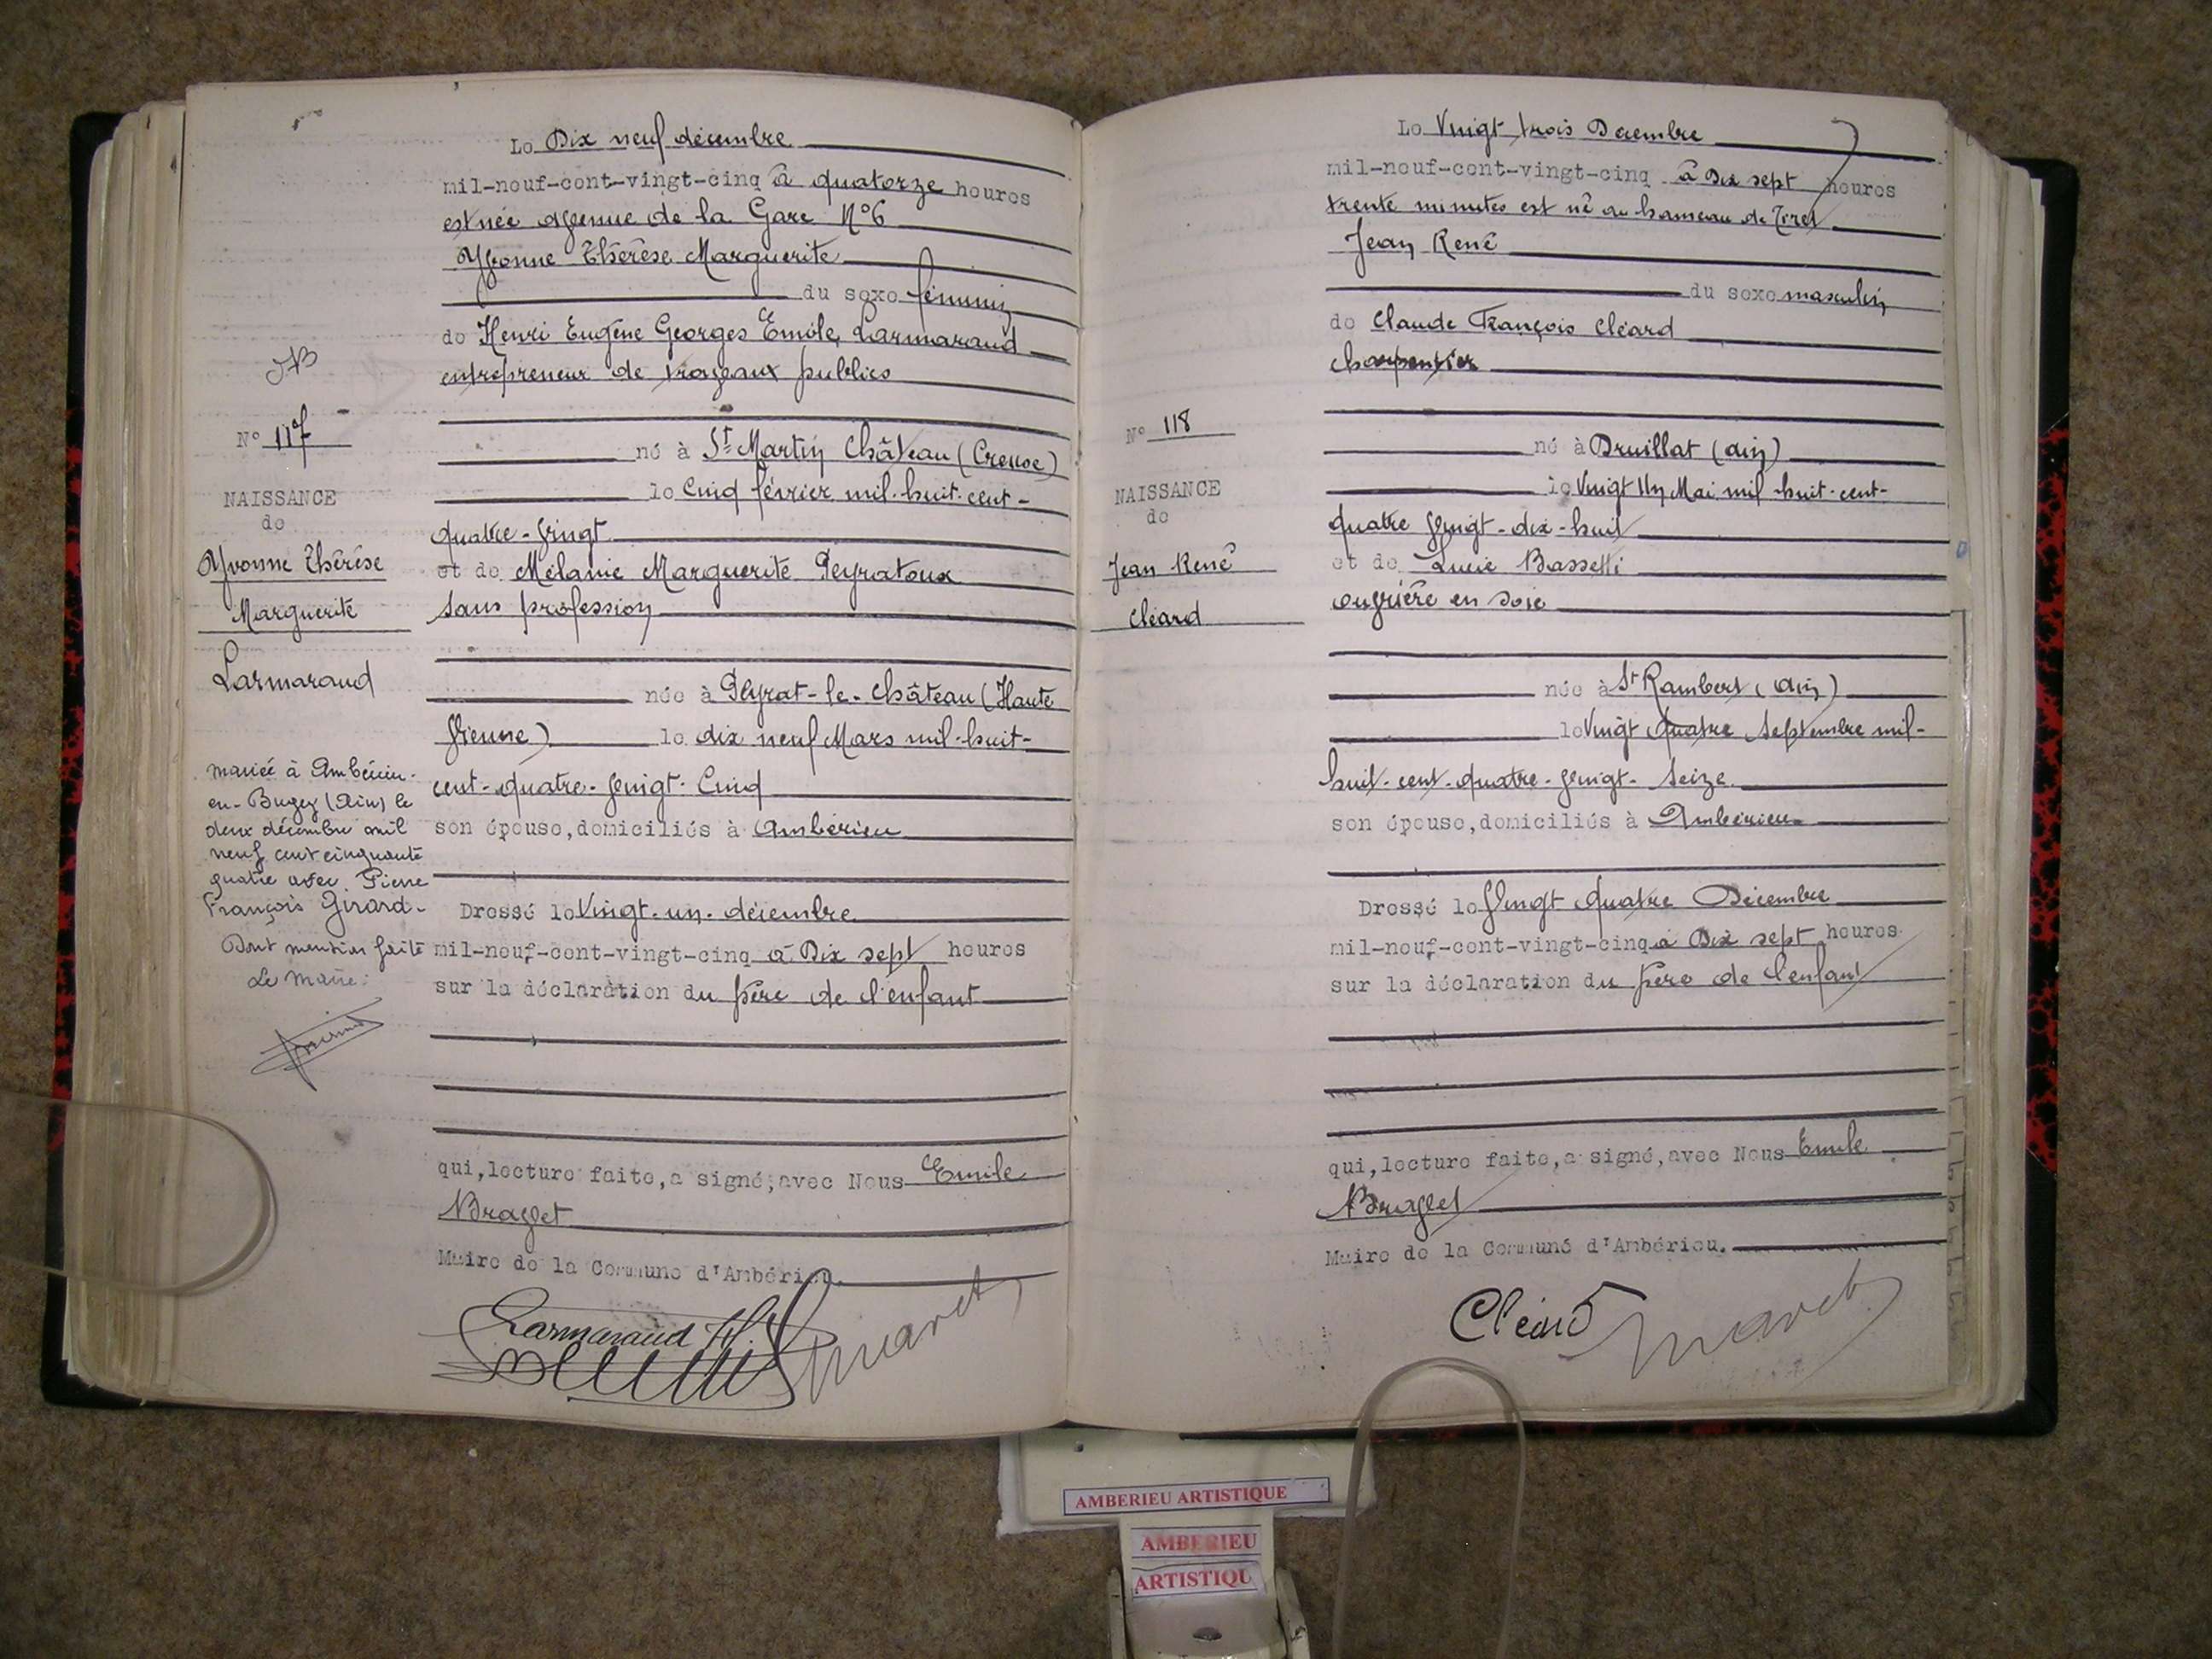 Le Dix neuf décembre
mil-neuf-cent-vingt-cinq à quatorze heures
est née avenue de la Gare N°6
Yvonne Thérèse Marguerite
du sexe féminin
de Henri Eugène Georges Emile Larmaraud
entrepreneur de travaux publics
né à St Martin Château (Creuse)
le Cinq février mil-huit-cent-
quatre-vingt
et de Mélanie Marguerite Peyratoux
sans profession
née à Peyrat-le-Château (Haute
Vienne) le dix neuf Mars mil-huit-
cent-quatre-vingt-Cinq
son épouse, domiciliés à Ambérieu
Dressé le Vingt-un-décembre
mil-neuf-cent-vingt-cinq à Dix sept heures
sur la déclaration du père de l'enfant
qui, lecture faite, a signé, avec Nous Emile
Bravet
Maire de la Commune d'Ambérieu.
Larmaraud H.
N° 117
NAISSANCE
de
Yvonne Thérèse
Marguerite
Larmaraud
mariée à Ambérieu-
en-Bugey (Ain) le
deux décembre mil
neuf cent cinquante
quatre avec Pierre
François Girard.
Dont mention faite
Le Maire:
Le Vingt trois Décembre
mil-neuf-cent-vingt-cinq à Dix sept heures
trente minutes est né au hameau de Tiret
Jean René
du sexe masculin
de Claude François Cléard
charpentier
né à Druillat (Ain)
le Vingt Un Mai mil-huit-cent-
quatre vingt-dix-huit
et de Lucie Basselli
ouvrière en soie
née à St Rambert (Ain)
le Vingt Quatre Septembre mil-
huit-cent-quatre-vingt-Seize
son épouse, domiciliés à Ambérieu
Dressé le Vingt Quatre Décembre
mil-neuf-cent-vingt-cinq à Dix sept heures
sur la déclaration du père de l'enfant
qui, lecture faite, a signé, avec Nous Emile
Bravet
Maire de la Commune d'Ambérieu.
Cléard
N° 118
NAISSANCE
de
Jean René
Cléard
AMBERIEU ARTISTIQUE
AMBERIEU
ARTISTIQU